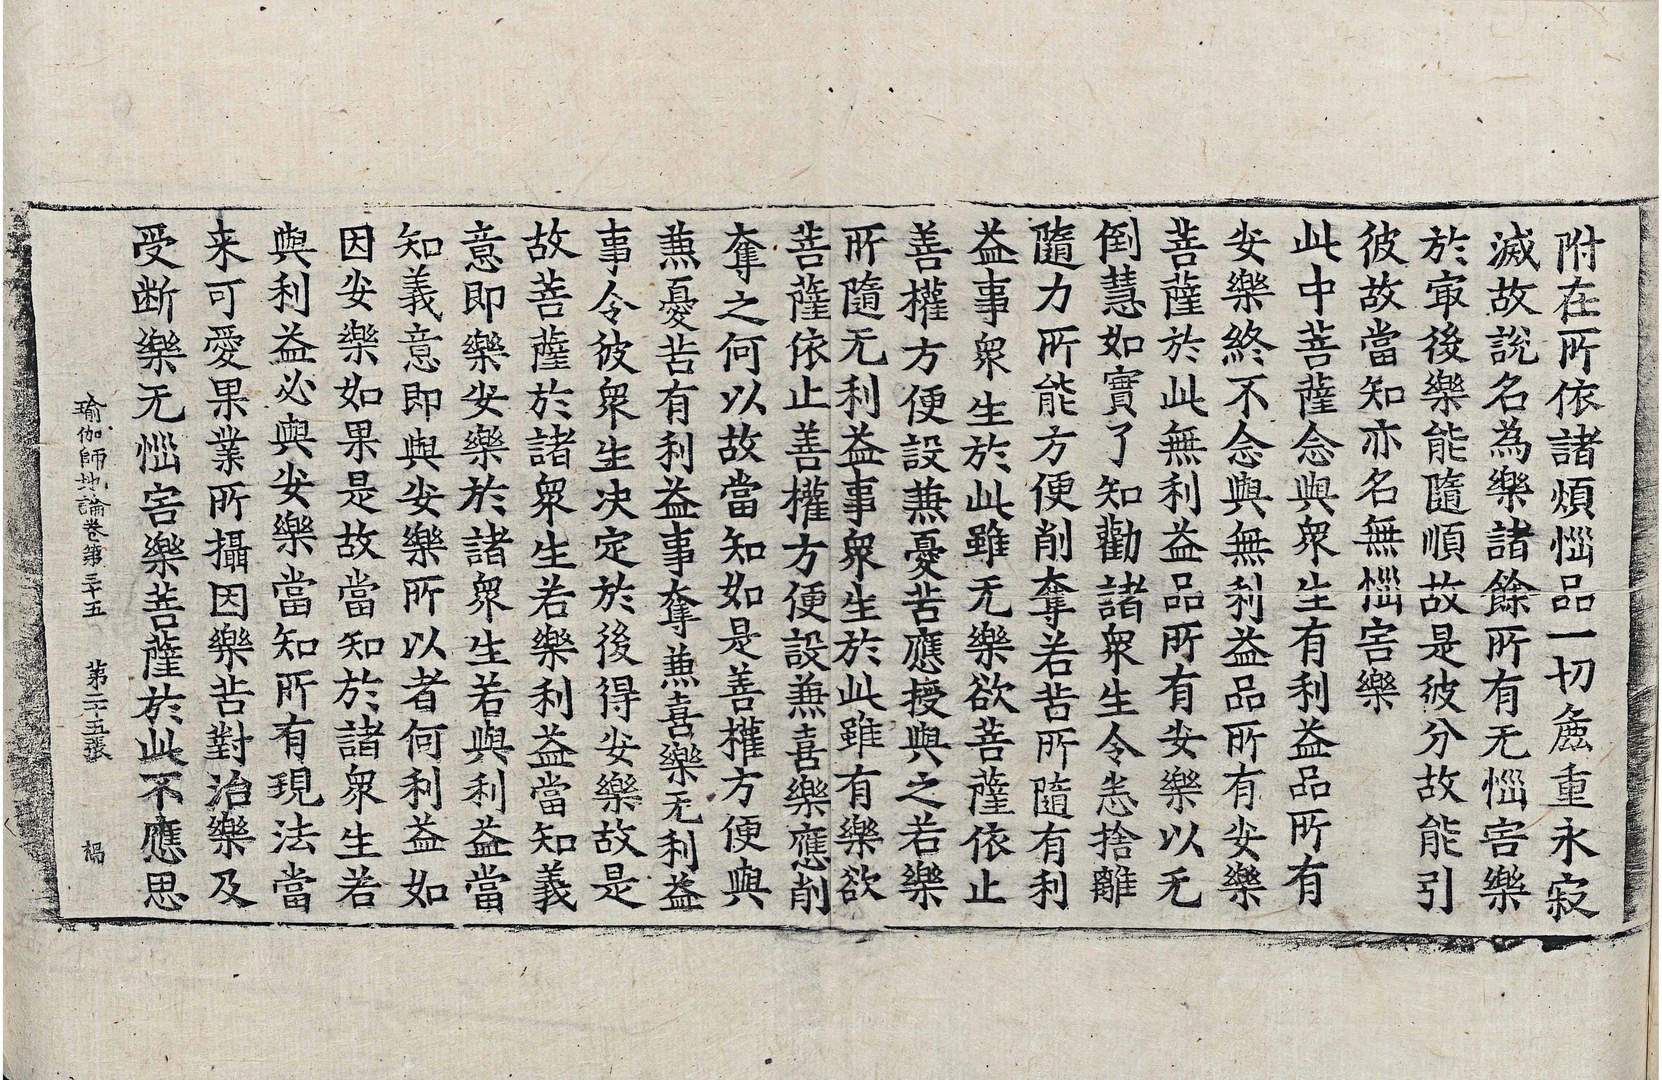 附在所依諸煩惱品一切麁重永寂
滅故說名為樂諸餘所有无惱害樂
於㝡後樂能隨順故是彼分故能引
彼故當知亦名無惱害樂
此中菩薩念與衆生有利益品所有
安樂終不念與無利益品所有安樂
菩薩於此無利益品所有安樂以无
倒慧如實了知勸諸衆生令恙捨離
隨力所能方便削奪若苦所隨有利
益事衆生於此雖无樂欲菩薩依止
善權方便設兼憂苦應授與之若樂
所隨无利益事衆生於此雖有樂欲
菩薩依止善權方便設兼喜樂應削
奪之何以故當知如是善權方便與
兼憂苦有利益事奪兼喜樂无利益
事令彼衆生决定於後得安樂故是
故菩薩於諸衆生若樂利益當知義
意即樂安樂於諸衆生若與利益當
知義意即與安樂所以者何利益如
因安樂如果是故當知於諸衆生若
與利益必與安樂當知所有現法當
来可愛果業所攝因樂苦對治樂及
受断樂无惱害樂菩薩於此不應思
瑜伽師地論卷第三十五 第二十五張 楬